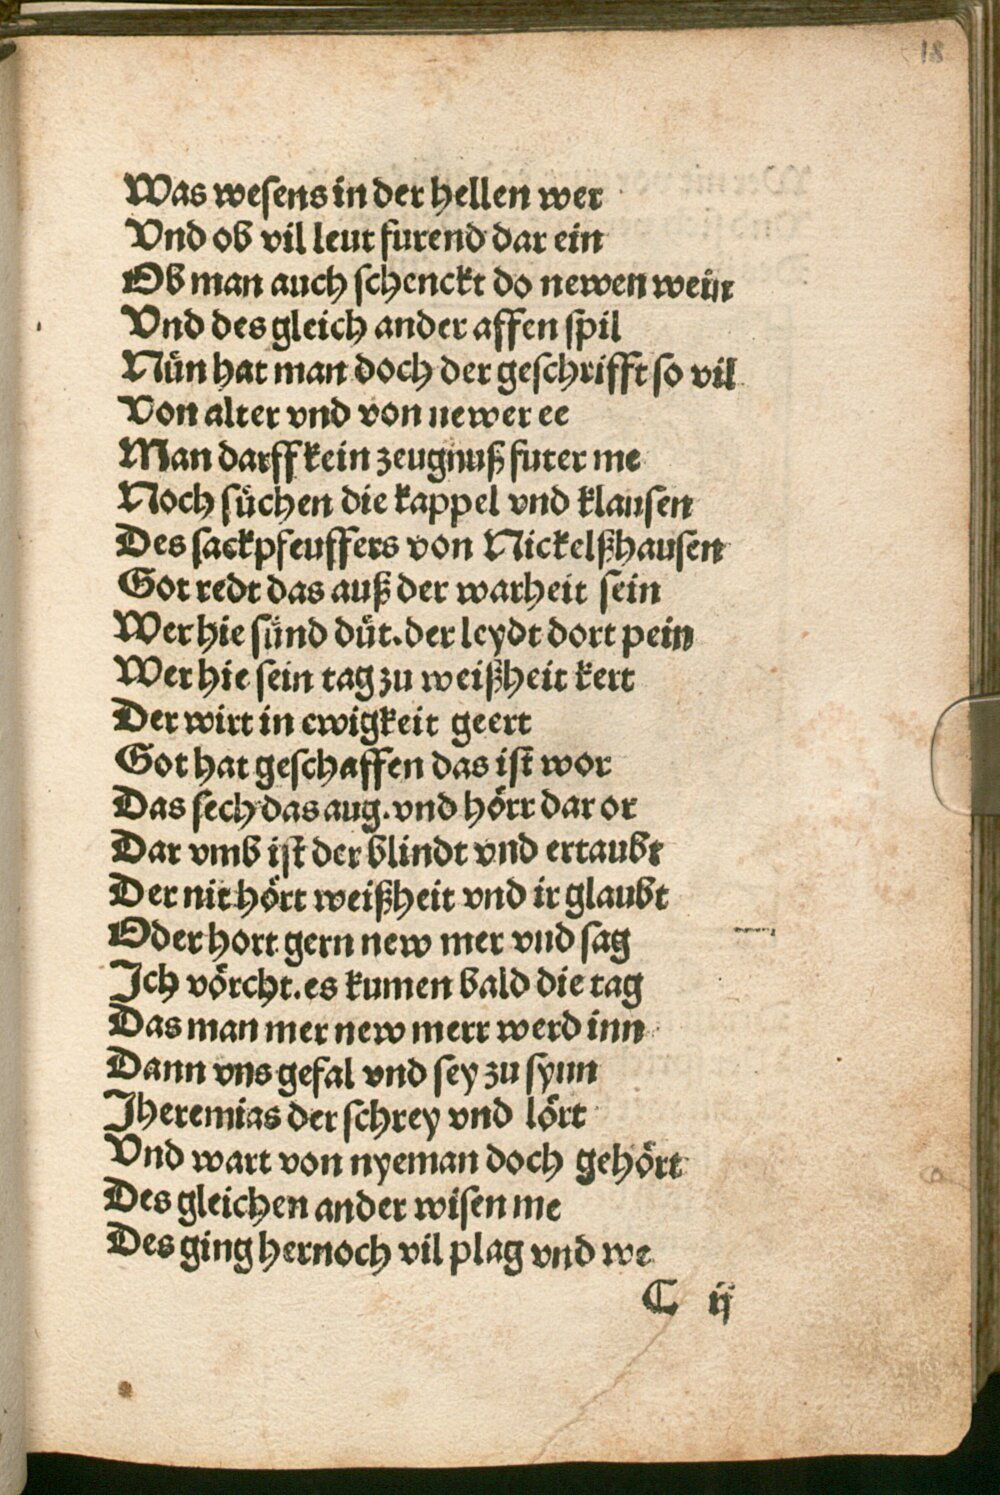 18
Was wesens in der hellen wer
Vnd ob vil leut furend dar ein
Ob man auch schenckt do newen wein
Vnd des gleich ander affen spil
Nün hat man doch der geschrifft so vil
Von alter vnd von newer ee
Man darff kein zeugnuß furer me
Noch süchen die kappel vnd klausen
Des sackpfeuffers von Nickelßhausen
Got redt das auß der warheit sein
Wer hie sünd düt. der leydt dort pein
Wer hie sein tag zu weißheit kert
Der wirt in ewigkeit geert
Got hat geschaffen das ist wor
Das sech das aug. vnd hörr dar or
Dar vmb ist der blindt vnd ertaubt
Der nit hört weißheit vnd ir glaubt
Oder hort gern new mer vnd sag
Ich vörcht. es kumen bald die tag
Das man mer new merr werd inn
Dann vns gefal vnd sey zu synn
Jheremias der schrey vnd lört
Vnd wart von nyeman doch gehört
Des gleichen ander wisen me
Des ging hernoch vil plag vnd we
C ij